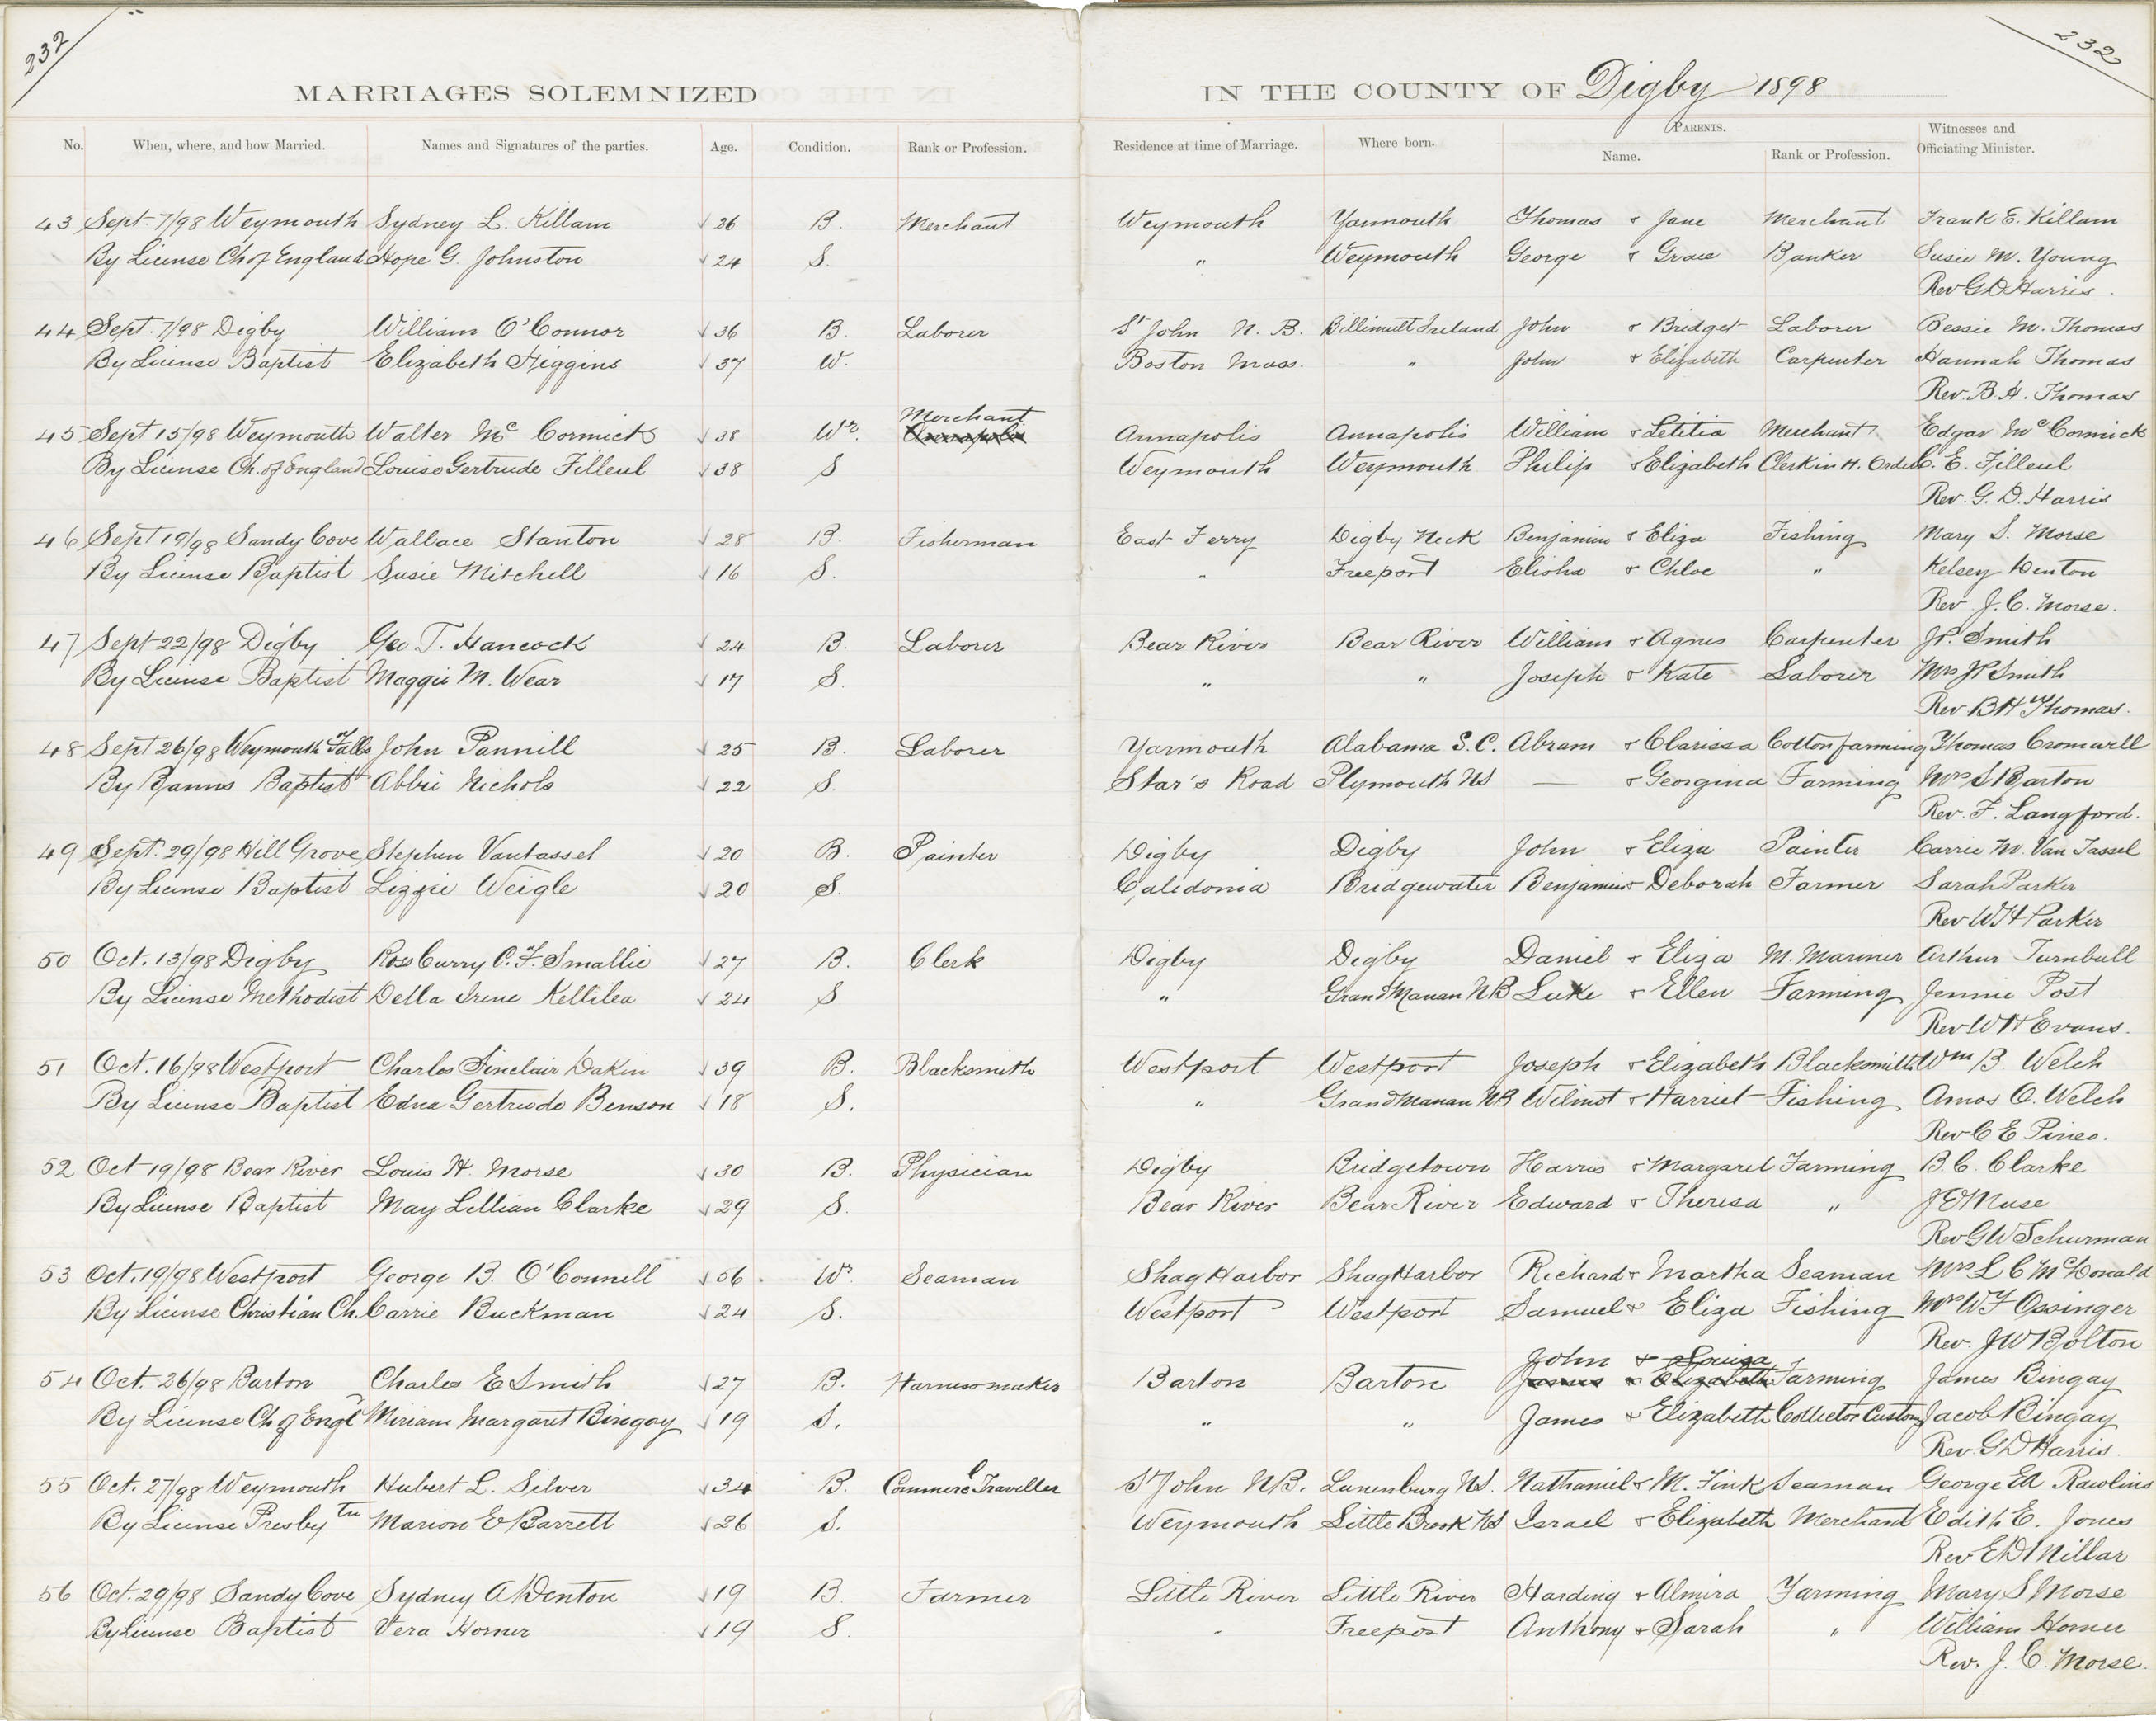 232
232
MARRIAGES SOLEMNIZED IN THE COUNTY OF Digby 1898
No. When, where, and how Married. Names and Signatures of the parties. Age. Condition. Rank or Profession. Residence at time of Marriage. Where born. PARENTS. Name. Rank or Profession. Witnesses and Officiating Minister.
43 Sept 7/98 Weymouth Sydney L. Killam √26 B. Merchant Weymouth Yarmouth Thomas & Jane Merchant Frank E. Killam
By License Ch of England Hope G. Johnston √24 S. " Weymouth George & Grace Banker Susie M. Young
Rev G D Harris.
44 Sept. 7/98 Digby William O'Connor √36 B. Laborer St John N. B. Ireland John & Bridget Laborer Bessie M. Thomas
By License Baptist Elizabeth Higgins √37 W. Boston Mass. " John & Elizabeth Carpenter Hannah Thomas
Rev. B. H. Thomas
Merchant
45 Sept 15/98 Weymouth Walter Mc Cormick √38 Wr. Annapolis Annapolis Annapolis William & Letitia Merchant Edgar Mc Cormick
By License Ch. of England Louise Gertrude Filleul √38 S Weymouth Weymouth Philip & Elizabeth Clerk in H. Orders C. E. Filleul
Rev. G. D. Harris
46 Sept 19/98 Sandy Cove Wallace Stanton √28 B. Fisherman East Ferry Digby Neck Benjamin & Eliza Fishing Mary S. Morse
By License Baptist Susie Mitchell √16 S. " Freeport Elisha & Chloe " Kelsey Denton
Rev J. C. Morse.
47 Sept 22/98 Digby Geo T. Hancock √24 B. Laborer Bear River Bear River William & Agnes Carpenter JP. Smith
By License Baptist Maggie M. Wear √17 S. " " Joseph & Kate Laborer Mrs JP Smith
Rev B H Thomas.
48 Sept 26/98 Weymouth Falls John Pannill √25 B. Laborer Yarmouth Alabama S.C. Abram & Clarissa Cotton farming Thomas Cromwell
By Banns Baptist Abbie Nichols √22 S. Star's Road Plymouth NS — & Georgina Farming Mrs S Barton
Rev. F. Langford.
49 Sept. 29/98 Hill Grove Stephen Vantassel √20 B. Painter Digby Digby John & Eliza Painter Carrie M. Van Tassel
By License Baptist Lizzie Weigle √20 S. Caledonia Bridgewater Benjamin & Deborah Farmer Sarah Parker
Rev W H Parker
50 Oct. 13/98 Digby Ross Curry C. F. Smallie √27 B. Clerk Digby Digby Daniel & Eliza M. Mariner Arthur Turnbull
By License Methodist Della Irene Kellilea √24 S " Grand Manan NB Luke & Ellen Farming Jennie Post
Rev W H Evans.
51 Oct. 16/98 Westport Charles Sinclair Dakin √39 B. Blacksmith Westport Westport Joseph & Elizabeth Blacksmith Wm B. Welch
By License Baptist Edna Gertrude Benson √18 S. " Grand Manan NB Wilmot & Harriet Fishing Amos O. Welch
Rev C E Pineo.
52 Oct 19/98 Bear River Louis H. Morse √30 B. Physician Digby Bridgetown Harris & Margaret Farming B. C. Clarke
By License Baptist May Lillian Clarke √29 S. Bear River Bear River Edward & Theresa " J E Muse
Rev G W Schurman
53 Oct. 19/98 Westport George B. O'Connell √56 Wr. Seaman Shag Harbor Shag Harbor Richard & Martha Seaman Mrs L C McDonald
By License Christian Ch. Carrie Buckman √24 S. Westport Westport Samuel & Eliza Fishing Mrs W F Ossinger
Rev. J W Bolton
John & Louisa
54 Oct. 26/98 Barton Charles E Smith √27 B. Harnessmaker Barton Barton James & Elizabeth Farming James Bingay
By License Ch of Engl Miriam Margaret Bingay √19 S. " " James & Elizabeth Collector Customs Jacob Bingay
Rev. G D Harris.
55 Oct. 27/98 Weymouth Hubert L. Silver √34 B. Commerc'l Traveller St John NB. Lunenburg NS. Nathaniel & M. Fink Seaman George Ed Rawlins
By License Presby tn Marion E Barrett √26 S. Weymouth Little Brook NS Israel & Elizabeth Merchant Edith E. Jones
Rev E D Millar
56 Oct. 29/98 Sandy Cove Sydney A Denton √19 B. Farmer Little River Little River Harding & Almira Farming Mary S Morse
By License Baptist Vera Horner √19 S. " Freeport Anthony & Sarah " William Horner
Rev. J. C. Morse.